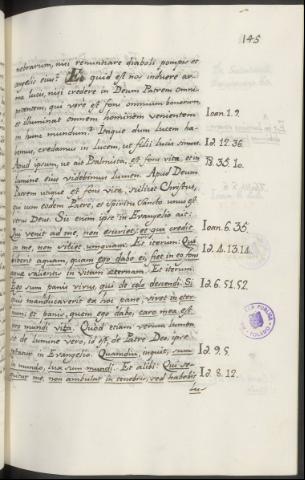 145
nebrarum, nisi renuntiare diaboli pompis et
angelis eius? Et quid est nos induere ar-
ma lucis, nisi credere in Deum Patrem omni-
potentem, qui vere est fons omnium bonorum,
et illuminat omnem hominem venientem Ioan. 1. 9.
in hunc mundum? Itaque dum lucem ha-
bemus, credamus in lucem, ut filii lucis simus Id. 12. 36.
Apud ipsum, ut ait Psalmista, est fons vitae, et in Ps. 35. 10.
lumine eius videbimus lumen. Apud Deum
Patrem utique est fons vitae, Filius Christus,
qui cum eodem Patre, et Spiritu Sancto unus est
verus Deus. Sic enim ipse in Evangelio ait:
Qui venit ad me, non esuriet; et qui credit Ioan. 6. 35.
in me, non sitiet umquam. Et iterum: Qui
biberit aquam, quam ego dabo ei, fiet in eo fons Id. 4. 13. 14.
aquae salientis in vitam aeternam. Et iterum:
Ego sum panis vivus, qui de caelo descendi. Si Id. 6. 51. 52.
quis manducaverit ex hoc pane, vivet in eter-
num: et panis, quem ego dabo, caro mea est
pro mundi vita. Quod etiam verum lumen
sit de lumine vero, id est, de Patre Deo, ipse
testatur in Evangelio. Quamdiu, inquit, sum Id. 9. 5.
in mundo, lux sum mundi. Et alibi: Qui se- Id. 8. 12.
quitur me, non ambulat in tenebris, sed habebit
lu-